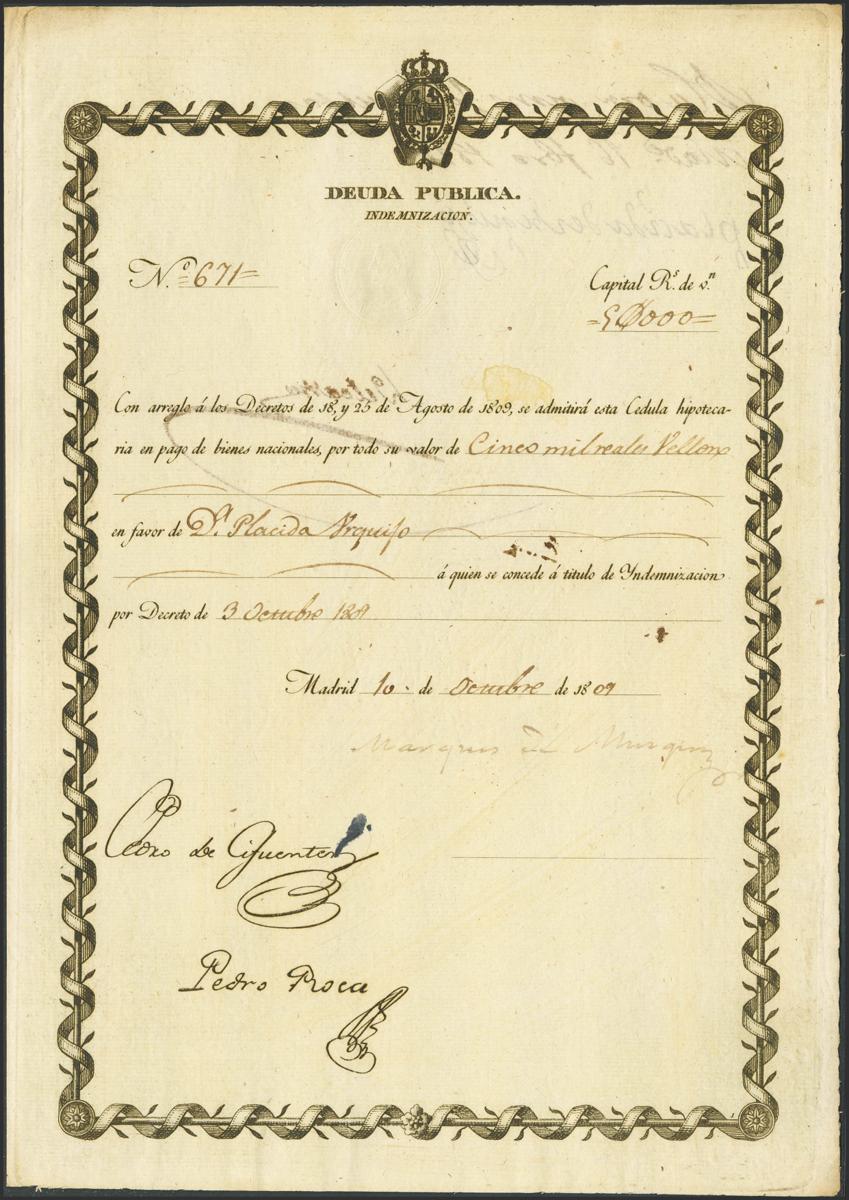 DEUDA PUBLICA.
INDEMNIZACION.
N.º =671=
Capital R.s de v.n
=5U000=
Con arreglo á los Decretos de 18, y 25 de Agosto de 1809, se admitirá esta Cedula hipoteca-
ria en pago de bienes nacionales, por todo su valor de Cinco mil reales Vellon
en favor de D.ª Placida Urquijo
á quien se concede á titulo de Indemnizacion
por Decreto de 3 Octubre 1809
Madrid 10 de Octubre de 1809
Pedro de Cifuentes
Pedro Roca